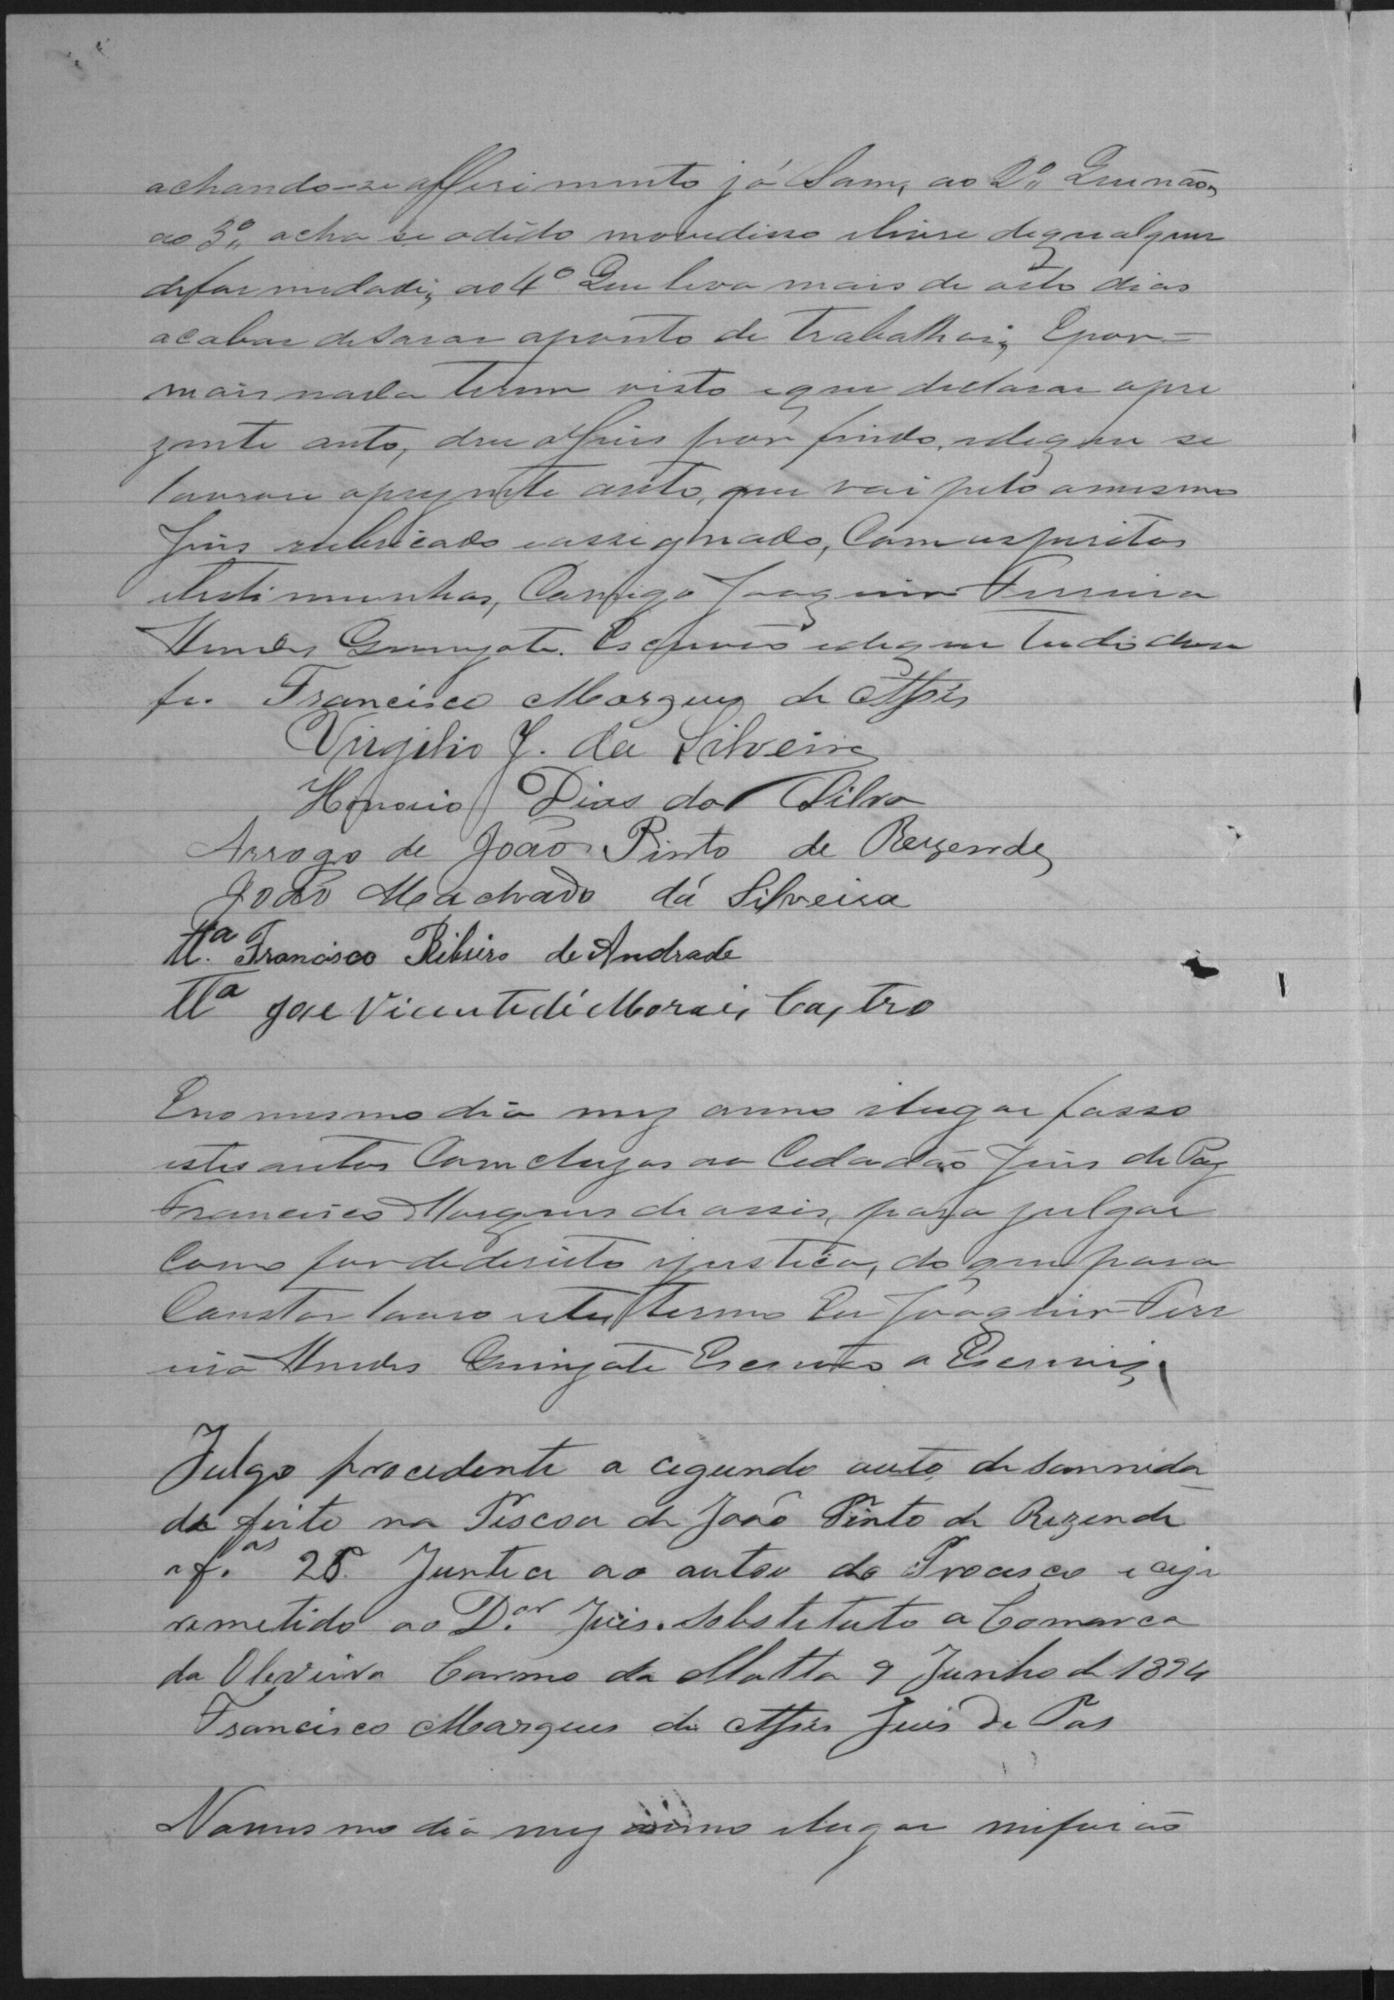 achando-se offerimento já Sam, ao 2º Que não,
ao 3º, acha se o dédo movedisso elivre dequalquer
deformidade, ao 4º Que leva mais de oito dias
acabar de Sarar aponto de trabalhar, Epor=
mais nada terem visto eque declarar opre
zente auto, deu o Juis por findo, edeque se
lavrou oprezente auto, que vai pelo omesmo
Juis rubricado eassignado, Com os peritos
etestimunhas, Comigo Joaquim Ferreira
Mendes Escrivão edeque tudo dou
fe. Francisco Marques de Assis
Virgilio J. da Silveira
Honorio Dias da Silva
Arrogo de João Pinto de Rezende
João Machado dá Silveira
Tta. Francisco Ribeiro de Andrade
Tta José Vicente dé Morais Castro
Eno mesmo dia mez anno elugar fasso
estes autos Comcluzos ao Cedadão Juis de Paz
Francisco Marques de assis, para julgar
Como for de dereito ejustica, do que para
Constar lavro este termo Eu Joaquim Ferr
eira Mendes Escrivão o Escrevi,
Julgo procedente a cegundo auto de Sannida
de feito na Pescoa de João Pinto de Rezende
af.as 28 Junte a ao autou do Processo e ceja
remetido ao D.or Juis. Sobstetuto a Comarca
da Oliveira Carmo da Matta 9 Junho de 1894
Francisco Marques de Assis Juis de Pas
Nomesmo dia mez anno elugar mefurão